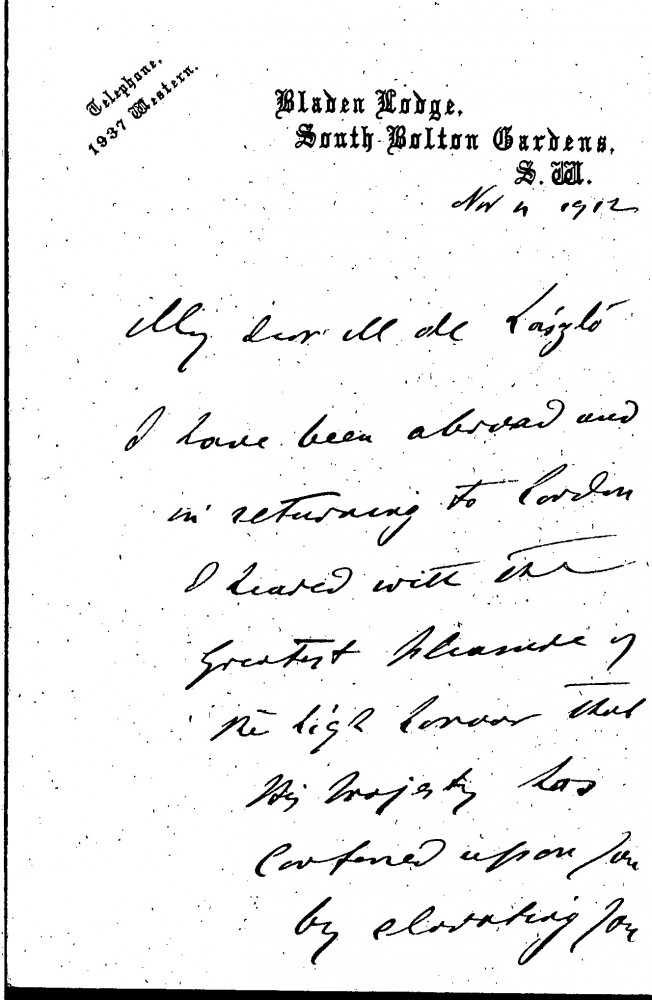 Telephone,
1937 Western.
Bladen Lodge,
South Bolton Gardens,
S. W.
Nov 11 1912
My dear M de László
I have been abroad and
in returning to London
I heared with the
greatest pleasure of
the high honour that
His Majesty has
conferred upon you
by elevating you